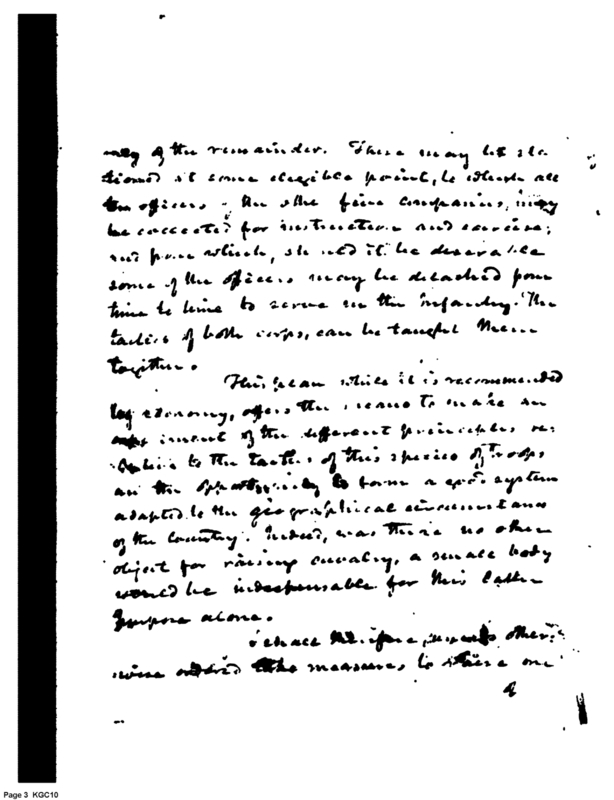 of the remainder. These may be sta
tioned at some elegible point, to which all
the officers of the other four companies, may
be collected for instruction and exercise;
and from which, should it be desirable
some of the officers may be detached from
time to time to serve in the infantry. The
tactics of both corps, can be taught them
together.
This plan while it is recommended
by economy, offers the means to make an
of the different principles re-
lative to the tactics of this species of troops
an the opportunity to form a good system
adapted to the geographical circumstances
of the Country. Indeed, was there no other
object for raising cavalry, a small body
would be indespensable for this latter
purpose alone.
I shall therefore, unless other
wise ordered take measures to raise one